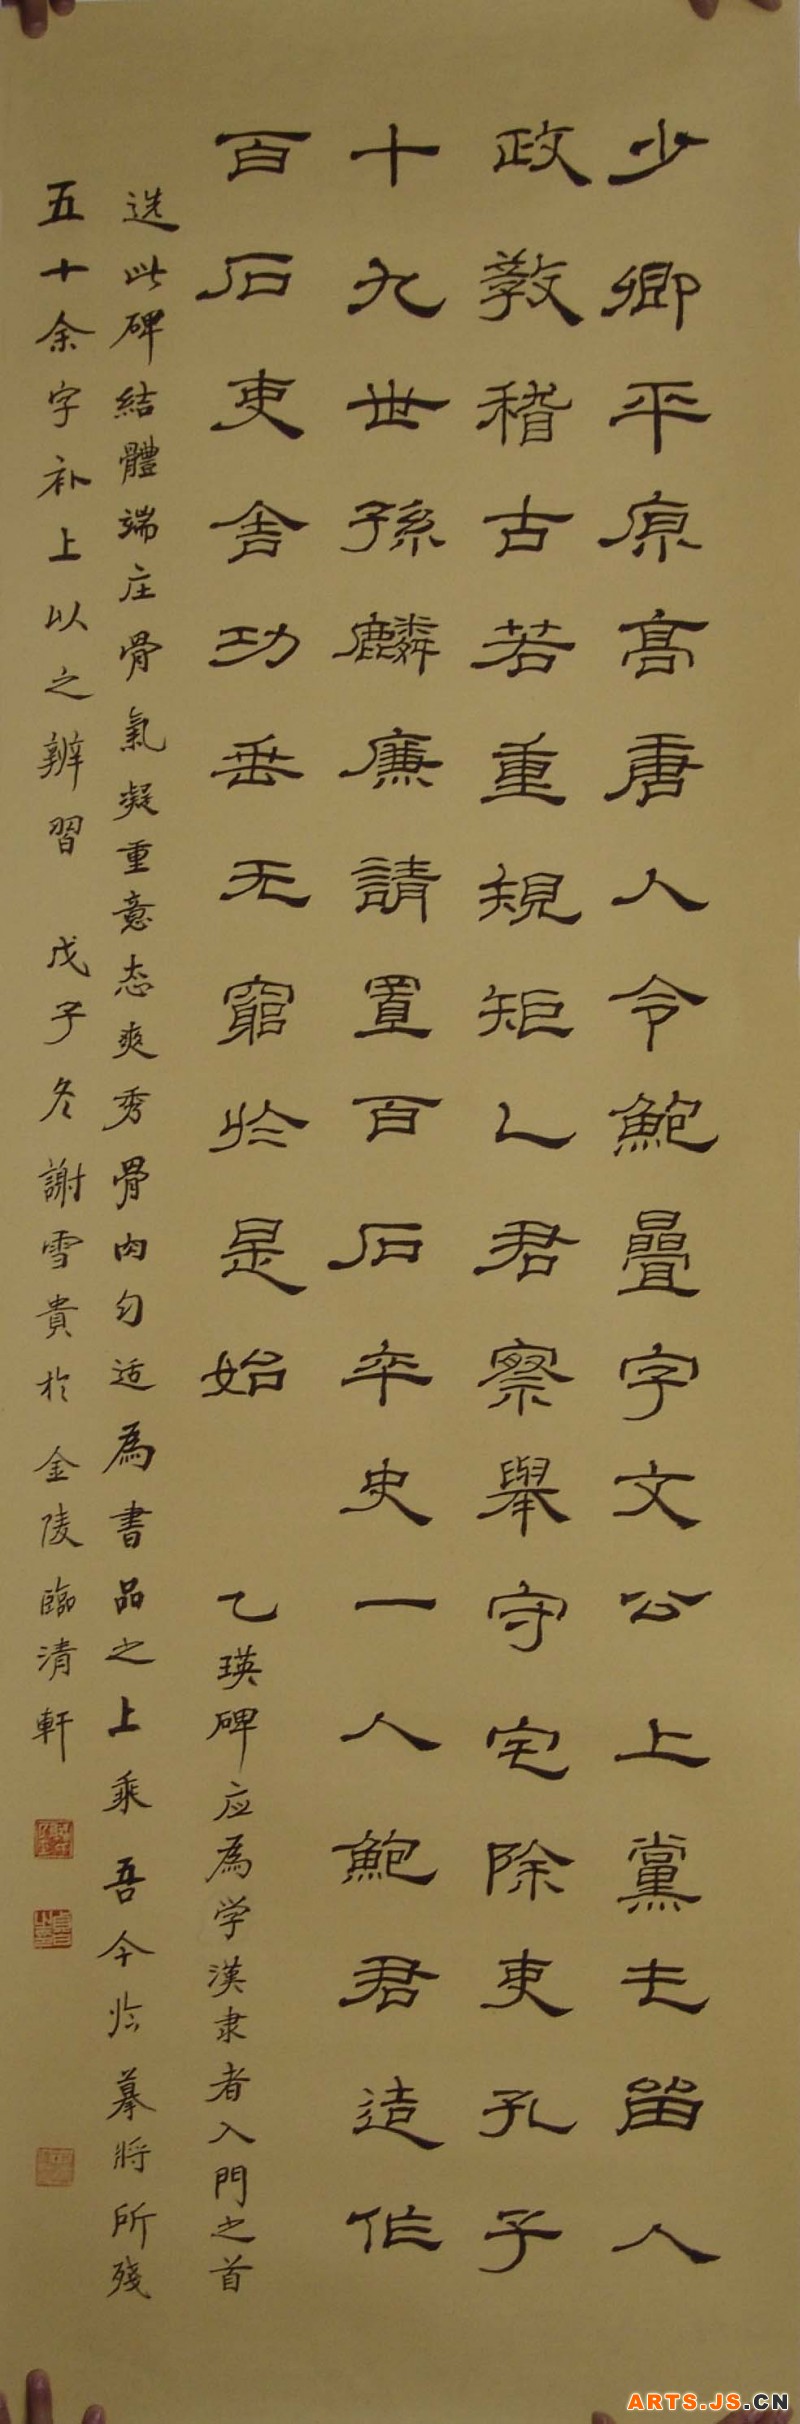 少卿平原高唐人令鮑疊字文公上黨屯留人
政教稽古若重規矩乙君察舉守宅除吏孔子
十九世孫麟廉請置百石卒史一人鮑君造作
百石吏舍功垂无窮於是始
乙瑛碑应為学漢隶者入門之首
选此碑結體端庄骨氣凝重意态爽秀骨肉匀适為書品之上乘吾今临摹將所殘
五十余字补上以之辦習 戊子冬謝雪貴於金陵臨清軒
ARTS.JS.CN